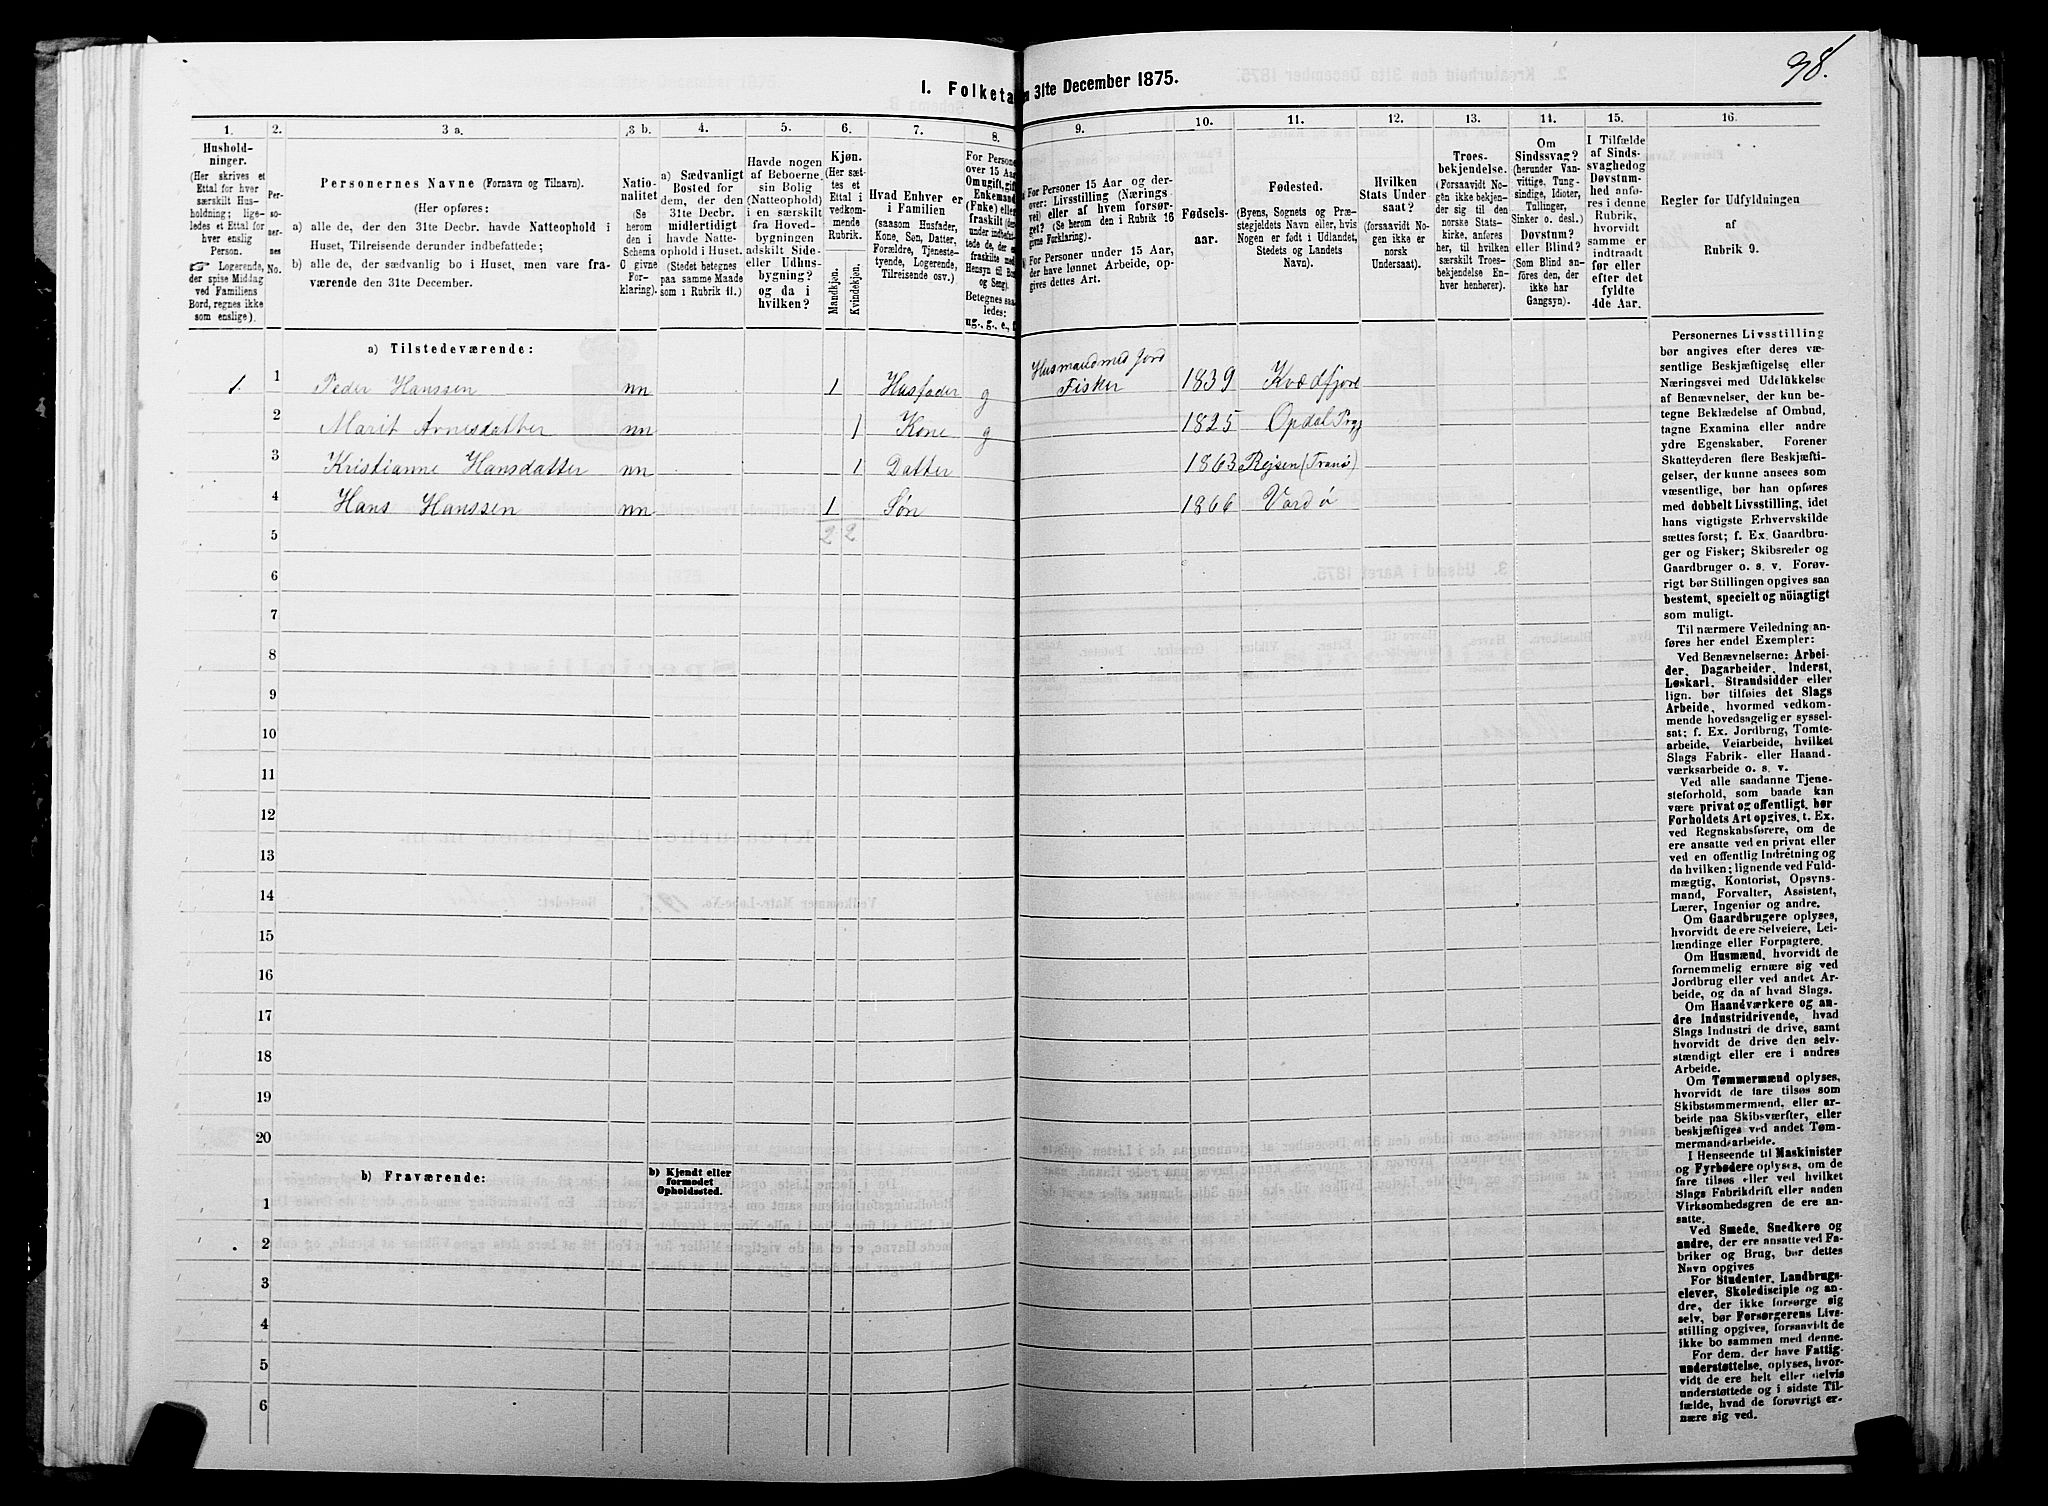 98.
I. Folketa n 31te December 1875.
1. 2. 3 a. 3 b. 4. 5. 6. 7. 8. 9. 10. 11. 12. 13. 14. 15. 16.
Hushold-
ninger.
(Her skrives et
Ettal for hver
særskilt Hus-
holdning; lige-
ledes et Ettal for
hver enslig
Person.
☞ Logerende,
der spise Middag
ved Familiens
Bord, regnes ikke
som enslige).
Per-
so-
ner-
nes
No.
Personernes Navne (Fornavn og Tilnavn).
(Her opføres:
a) alle de, der den 31te Decbr. havde Natteophold i
Huset, Tilreisende derunder indbefattede;
b) alle de, der sædvanlig bo i Huset, men vare fra-
værende den 31te December.
Natio-
nalitet
(Se
herom
den i
Schema
C givne
For-
klaring).
a) Sædvanligt
Bosted for
dem, der den
31te Decbr.
midlertidigt
havde Natte-
ophold i Huset.
(Stedet betegnes
paa samme Maade
som i Rubrik 11.)
Havde nogen
af Beboerne
sin Bolig
(Natteophold)
i en særskilt
fra Hoved-
bygningen
adskilt Side-
eller Udhus-
bygning?
og da i
hvilken?
Kjøn.
(Her sæt-
tes et
Ettal i
vedkom-
mende
Rubrik.
Mandkjøn.
Kvindekjøn.
Hvad Enhver er
i Familien
(saasom Husfader,
Kone, Søn, Datter,
Forældre, Tjeneste-
tyende, Logerende,
Tilreisende osv.)
For Persone
over 15 Aar
Om ugift, gift
Enkemand
(Enke) eller
fraskilt
Hensyn til Bo
og Seng).
Betegnes saa-
ledes:
ug., g., e., f.
For Personer 15 Aar og der-
over: Livsstilling (Nærings-
vei) eller af hvem forsør-
get? (Se herom den i Rubrik 16
givne Forklaring).
For Personer under 15 Aar,
der have lønnet Arbeide, op-
gives dettes Art.
Fødsels-
aar.
Fødested.
(Byens, Sognets og Præ-
stegjeldets Navn eller, hvis
Nogen er født i Udlandet,
Stedets og Landets
Navn).
Hvilken
Stats Under
saat?
(forsaavidt No-
gen ikke er
norsk
Undersaat).
Troes-
bekjendelse.
(Forsaavidt No-
gen ikke bekjen-
der sig til den
norske Stats-
kirke, anføres
her, til hvilken
særskilt Troes-
bekjendelse En-
hver henhører).
Om
Sindssvag?
(herunder Van-
vittige, Tung-
sindige, Idioter,
Tullinger,
Sinker o. desl.)
Døvstum?
eller Blind?
(Som Blind an-
føres den, der
ikke har
Gangsyn).
I Tilfælde
af Sinds-
svaghed og
Døvstum-
hed anfø-
res i denne
Rubrik,
hvorvidt
samme er
indtraadt
før eller
efter det
fyldte
4de Aar.
Regler for Udfyldningen
af
Rubrik 9.
a) Tilstedeværende:
1. 1 Peder Hanssen nn 1 Husfader g Husmand med Jord Fisker 1839 Kvædfjord
2 Marit Arnesdatter nn 1 Kone g 1825 Opdal Prgj
3 Kristianne Hansdatter nn 1 Datter 1863 Rejsen (Tranø)
4 Hans Hanssen nn 1 Søn 1866 Vardø
5 2 2
6
7
8
9
10
11
12
13
14
15
16
17
18
19
20
b) Fraværende:
b) Kjendt eller
formodet
Opholdssted.
1
2
3
4
5
6
Personernes Livsstilling
bør angives efter deres væ-
sentlige Beskjæftigelse eller
Næringsvei med Udelukkelse
af Benævnelser, der kun be-
tegne Beklædelse af Ombud,
tagne Examina eller andre
ydre Egenskaber. Forener
Skatteyderen flere Beskjæfti-
gelser, der kunne ansees som
væsentlige, bør han opføres
med dobbelt Livsstilling, idet
hans vigtigste Erhvervskilde
sættes først; f. Ex. Gaardbru-
ger og Fisker; Skibsreder og
Gaardbruger o. s. v. Forøv-
rigt bør Stillingen opgives saa
bestemt, specielt og nöiagtigt
som muligt.
Til nærmere Veiledning an-
føres her endel Exempler:
Ved Benævnelserne: Arbei-
der, Dagarbeider, Inderst,
Løskarl, Strandsidder eller
lign. bør tilføies det Slags
Arbeide, hvormed vedkom-
mende hovedsagelig er syssel-
sat; f. Ex. Jordbrug, Tomte-
arbeide, Veiarbeide, hvilket
Slags Fabrik- eller Haand-
værksarbeide o. s. v.
Ved alle saadanne Tjene-
steforhold, som baade kan
være privat og offentligt, bør
Forholdets Art opgives, t. Ex.
ved Regnskabsførere, om de
ere ansatte ved en privat eller
ved en offentlig Indretning og
da hvilken; lignende ved Fuld-
mægtig, Kontorist, Opsyns-
mand, Forvalter, Assistent,
Lærer, Ingeniør og andre.
Om Gaardbrugere oplyses,
hvorvidt de ere Selveiere, Lei-
lændinge eller Forpagtere.
Om Husmænd, hvorvidt de
fornemmelig ernære sig ved
Jordbrug eller ved andet Ar-
beide, og da af hvad Slags.
Om Haandværkere og an-
dre Industridrivende, hvad
Slags Industri de drive, samt
hvorvidt de drive den selv-
stændigt eller ere i andres
Arbeide.
Om Tømmermænd oplyses,
hvorvidt de fare tilsøs som
Skibstømmermænd, eller ar-
beide paa Skibsværfter, eller
beskjæftiges ved andet Tøm-
mermandsarbeide.
I Henseende til Maskinister
og Fyrbødere oplyses, om de
fare tilsøs eller ved hvilket
Slags Fabrikdrift eller anden
Virksomhedsgren de ere an-
satte.
Ved Smede, Snedkere og
andre, der ere ansatte ved Fa-
briker og Brug, bør dettes
Navn opgives
For Studenter, Landbrugs-
elever, Skoledisciple og an-
dre, der ikke forsørge sig
selv, bør Forsørgerens Livs-
stilling opgives, forsaavidt de
ikke bo sammen med denne.
For dem, der have Fattig-
understøttelse, oplyses, hvor-
vidt de ere helt eller delvis
understøttede og i sidste Til-
fælde, hvad de forøvrigt er-
nære sig ved.